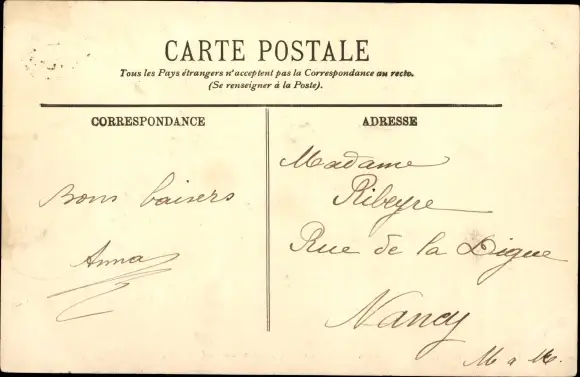 CARTE POSTALE
Tous les Pays étrangers n'acceptent pas la Correspondance au recto.
(Se renseigner à la Poste).
CORRESPONDANCE
Bons baisers
Anna
ADRESSE
Madame
Ribeyre
Rue de la Digue
Nancy
M a M.